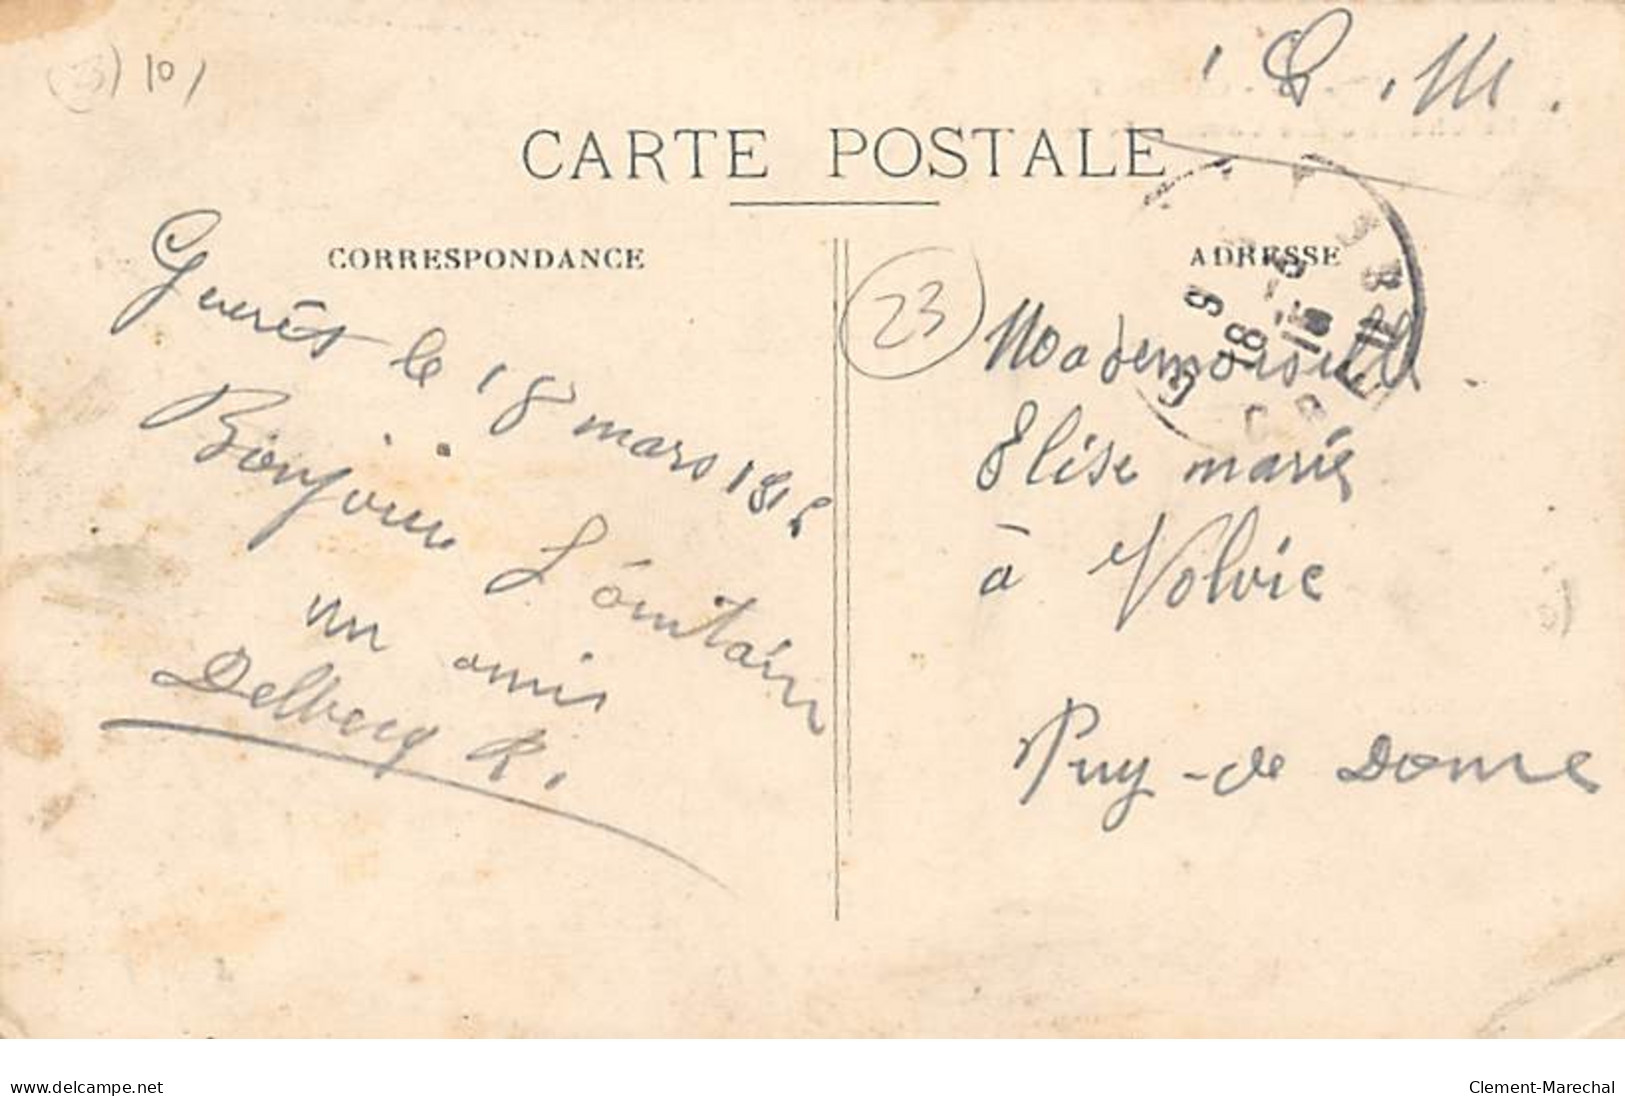 23) 10/
S. M.
CARTE POSTALE
CORRESPONDANCE
ADRESSE
Guerés le 18 mars 1915
Bonjour Lointain
un amis
Delbecq R.
23
Mademoiselle
Elise marie
à Volvic
Puy-de Dome
18-3
15
www.delcampe.net
Clement-Marechal